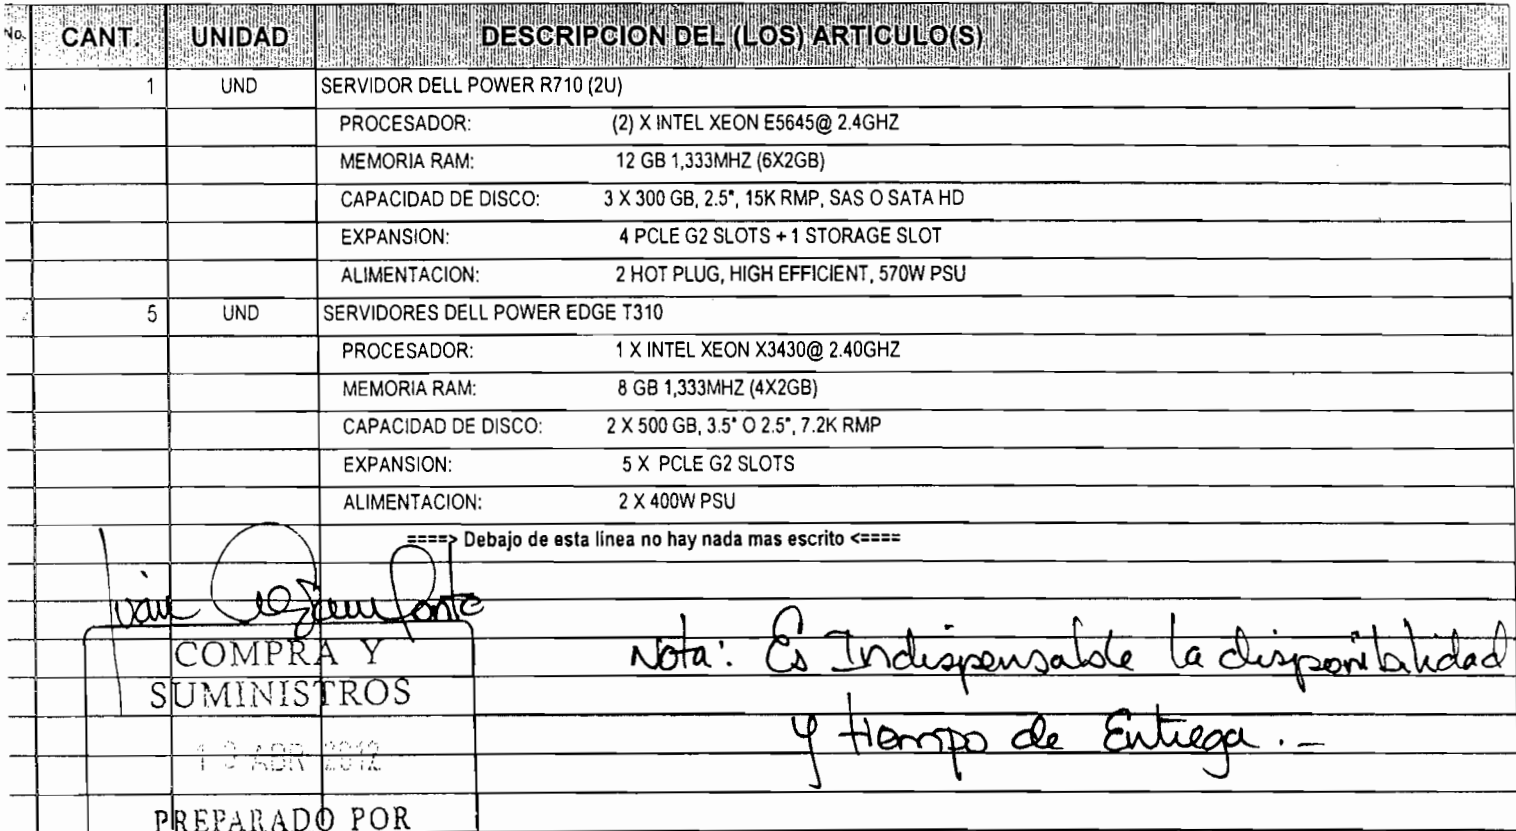 No. CANT. UNIDAD DESCRIPCION DEL (LOS) ARTICULO(S)
1 UND SERVIDOR DELL POWER R710 (2U)
PROCESADOR: (2) X INTEL XEON E5645@ 2.4GHZ
MEMORIA RAM: 12 GB 1,333MHZ (6X2GB)
CAPACIDAD DE DISCO: 3 X 300 GB, 2.5", 15K RMP, SAS O SATA HD
EXPANSION: 4 PCLE G2 SLOTS + 1 STORAGE SLOT
ALIMENTACION: 2 HOT PLUG, HIGH EFFICIENT, 570W PSU
5 UND SERVIDORES DELL POWER EDGE T310
PROCESADOR: 1 X INTEL XEON X3430@ 2.40GHZ
MEMORIA RAM: 8 GB 1,333MHZ (4X2GB)
CAPACIDAD DE DISCO: 2 X 500 GB, 3.5" O 2.5", 7.2K RMP
EXPANSION: 5 X PCLE G2 SLOTS
ALIMENTACION: 2 X 400W PSU
====> Debajo de esta linea no hay nada mas escrito <====
Iván
COMPRA Y
SUMINISTROS
ABR 2012
PREPARADO POR
Nota: Es Indispensable la disponibilidad
y tiempo de Entrega.-